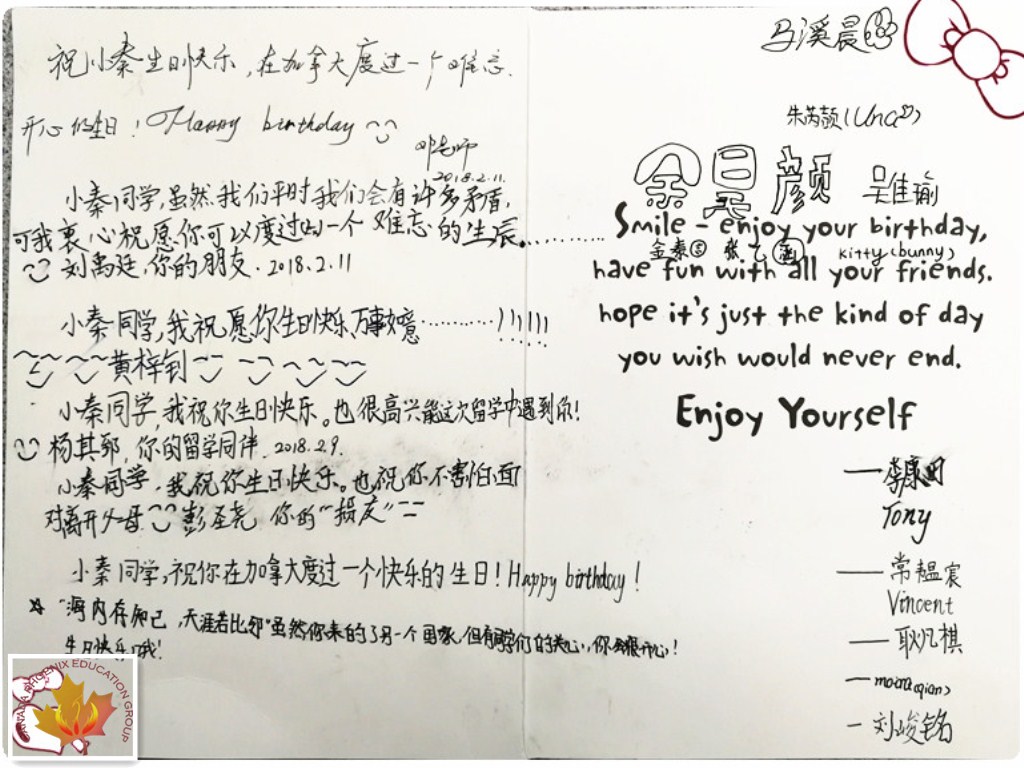 祝小秦生日快乐，在加拿大度过一个难忘
开心的生日！Happy birthday
邓老师
2018.2.11.
小秦同学，虽然我们平时我们会有许多矛盾，
可我衷心祝愿你可以度过出一个难忘的生辰。..........
刘禹廷，你的朋友.2018.2.11
小秦同学，我祝愿你生日快乐万事如意..........!!!!!!
黄梓钊
小秦同学，我祝你生日快乐。也很高兴能这次留学中遇到你！
杨其郅，你的留学同伴.2018.2.9.
小秦同学，我祝你生日快乐。也祝你不害怕面
对离开父母 彭圣尧，你的“损友”
小秦同学，祝你在加拿大度过一个快乐的生日！Happy birthday！
☆ “海内存知己，天涯若比邻”虽然你来的了另一个国家，但有同学们的关心，你会很开心！
生日快乐哦！
马溪晨
朱芮颉(Una)
余昊颜 吴佳瑜
Smile - enjoy your birthday,
金泰 张乙涵 Kitty(bunny)
have fun with all your friends.
hope it's just the kind of day
you wish would never end.
Enjoy Yourself
——李康
Tony
——常韫宸
Vincent
——耿凡棋
—moira(qian)
—刘峻铭
CANADA PHOENIX EDUCATION GROUP